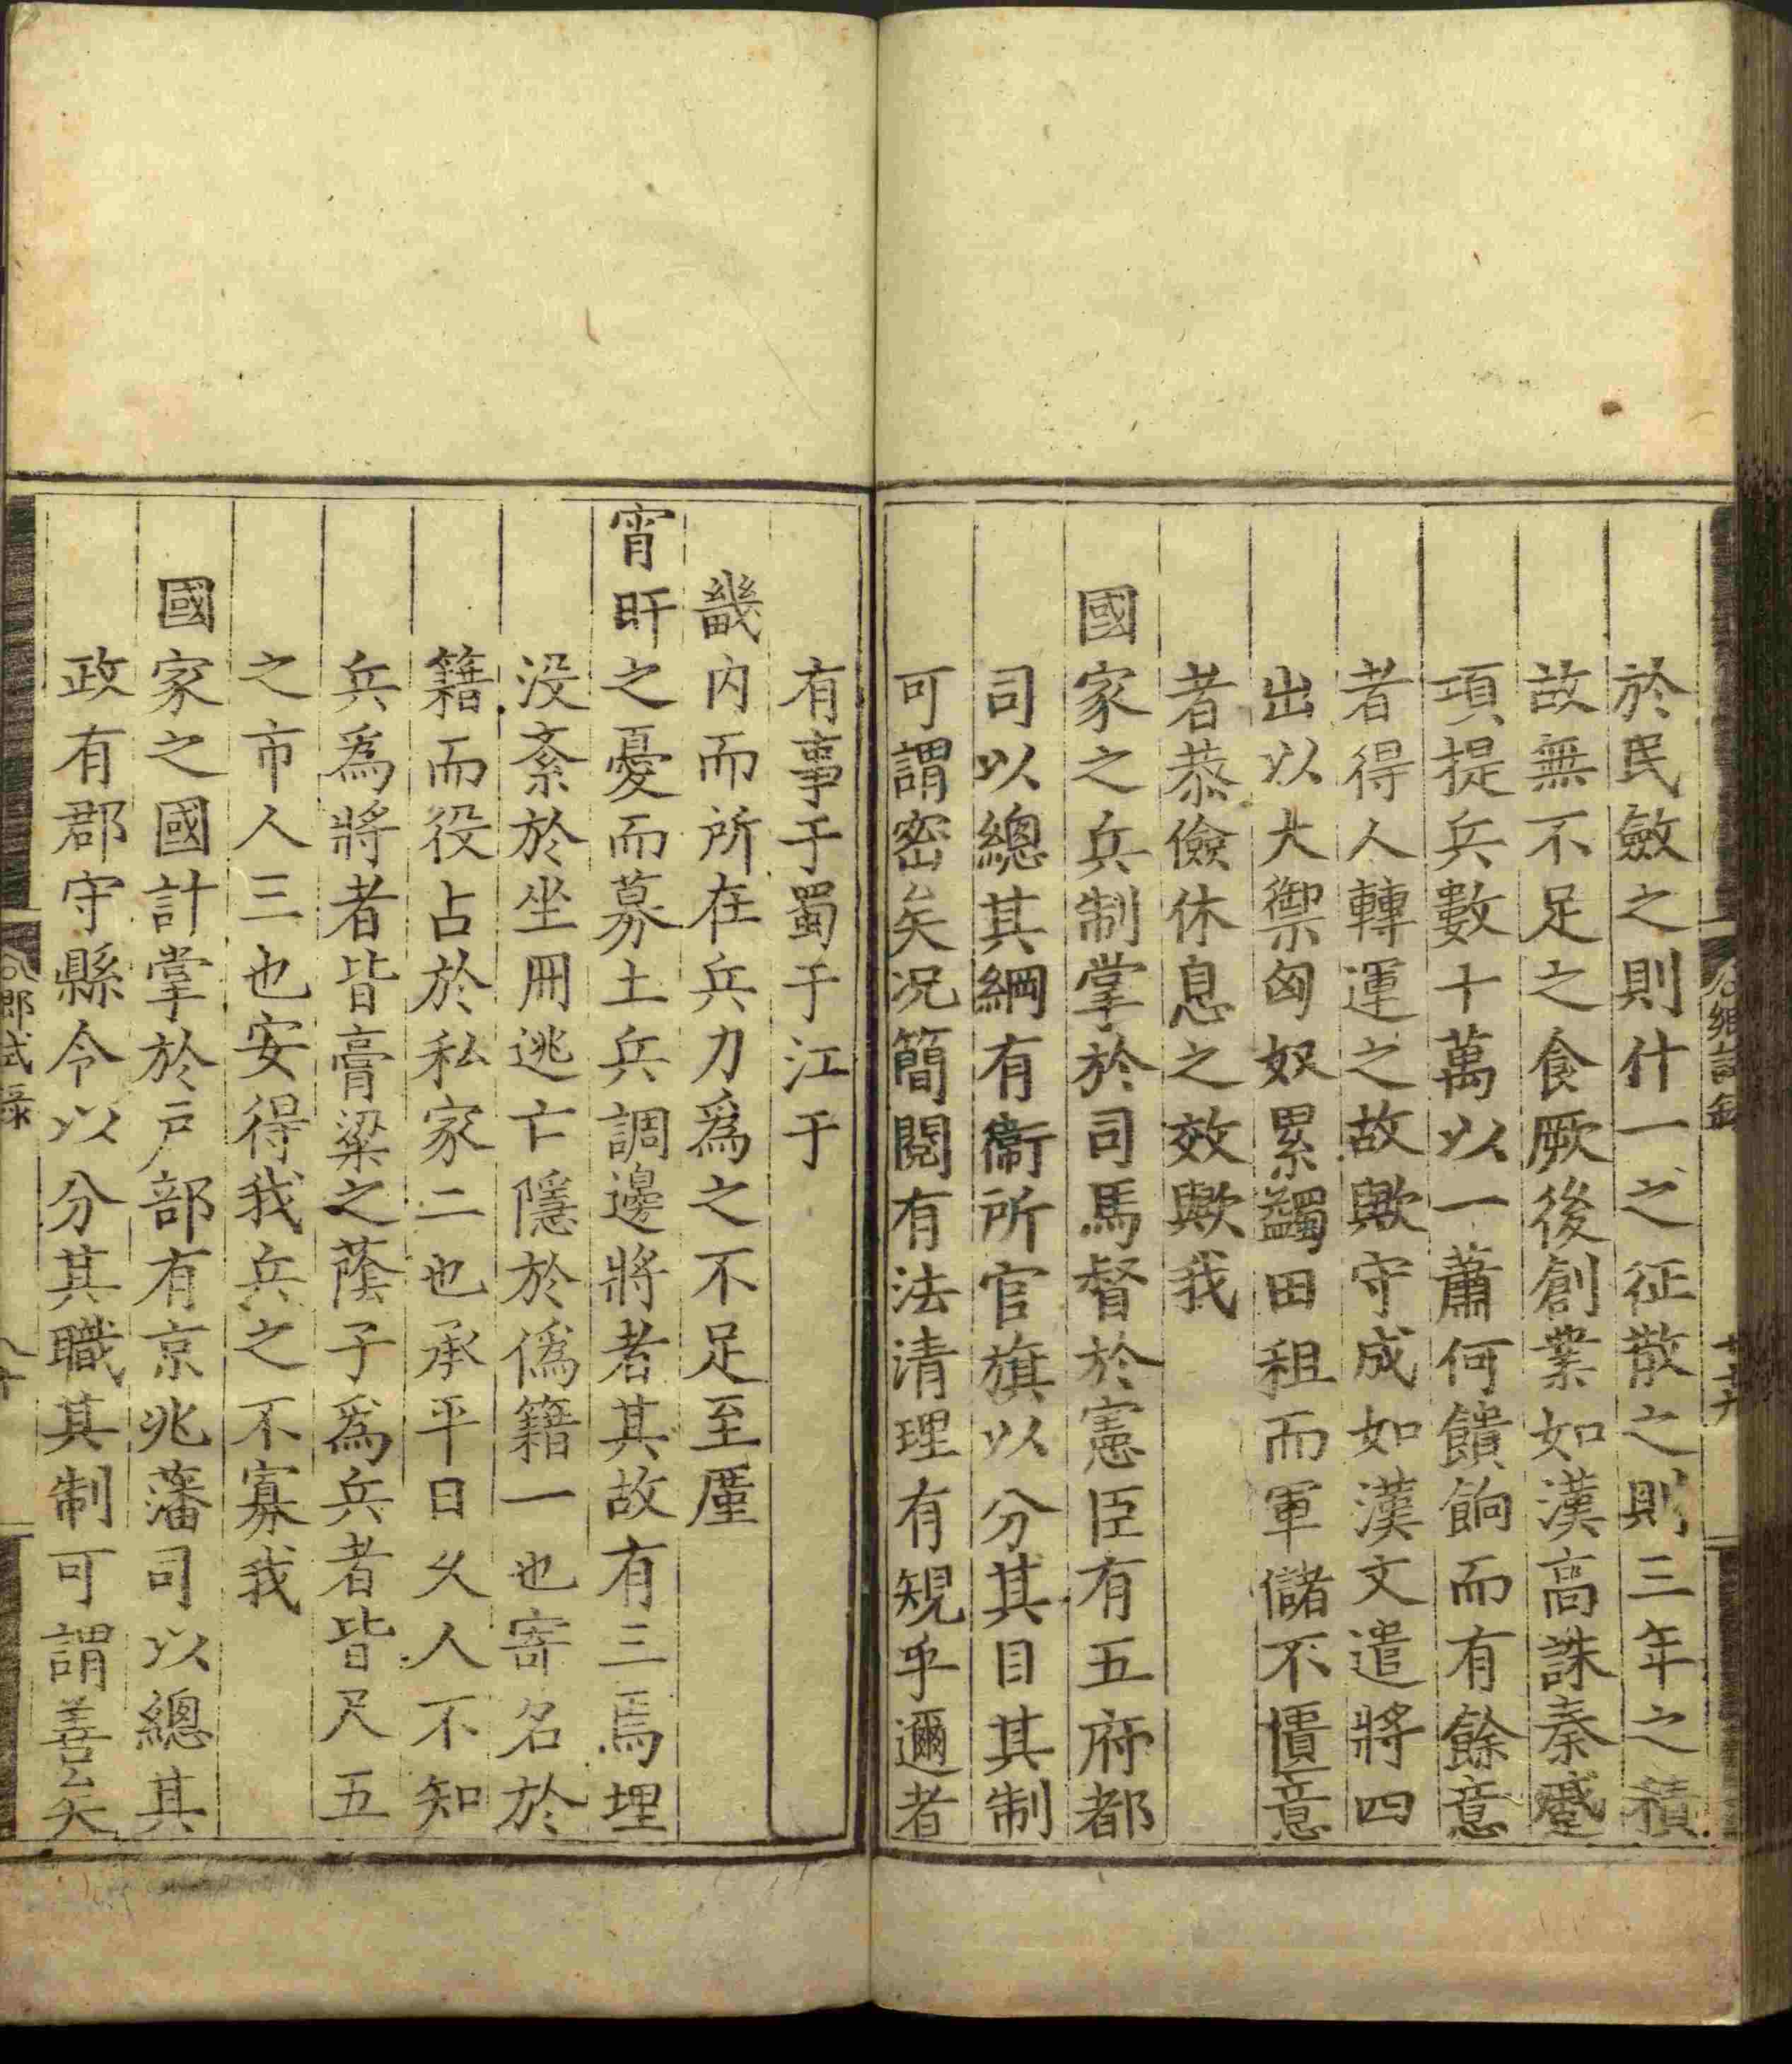 於民斂之則什一之征散之則三年之積
故無不足之食厥後創業如漢高誅秦蹙
項提兵數十萬以一蕭何饋餉而有餘意
者得人轉運之故歟守成如漢文遣將四
出以大禦匈奴累蠲田租而軍儲不匱意
者恭儉休息之效歟我
國家之兵制掌於司馬督於憲臣有五府都
司以總其綱有衞所官旗以分其目其制
可謂密矣况簡閱有法清理有規乎邇者
有事于蜀于江于
畿内而所在兵力爲之不足至厪
宵旰之憂而募土兵調邊將者其故有三焉埋
没紊於坐冊逃亡隱於僞籍一也寄名於
籍而役占於私家二也承平日久人不知
兵爲將者皆膏粱之蔭子爲兵者皆尺五
之市人三也安得我兵之不寡我
國家之國計掌於戶部有京兆藩司以總其
政有郡守縣令以分其職其制可謂善矣